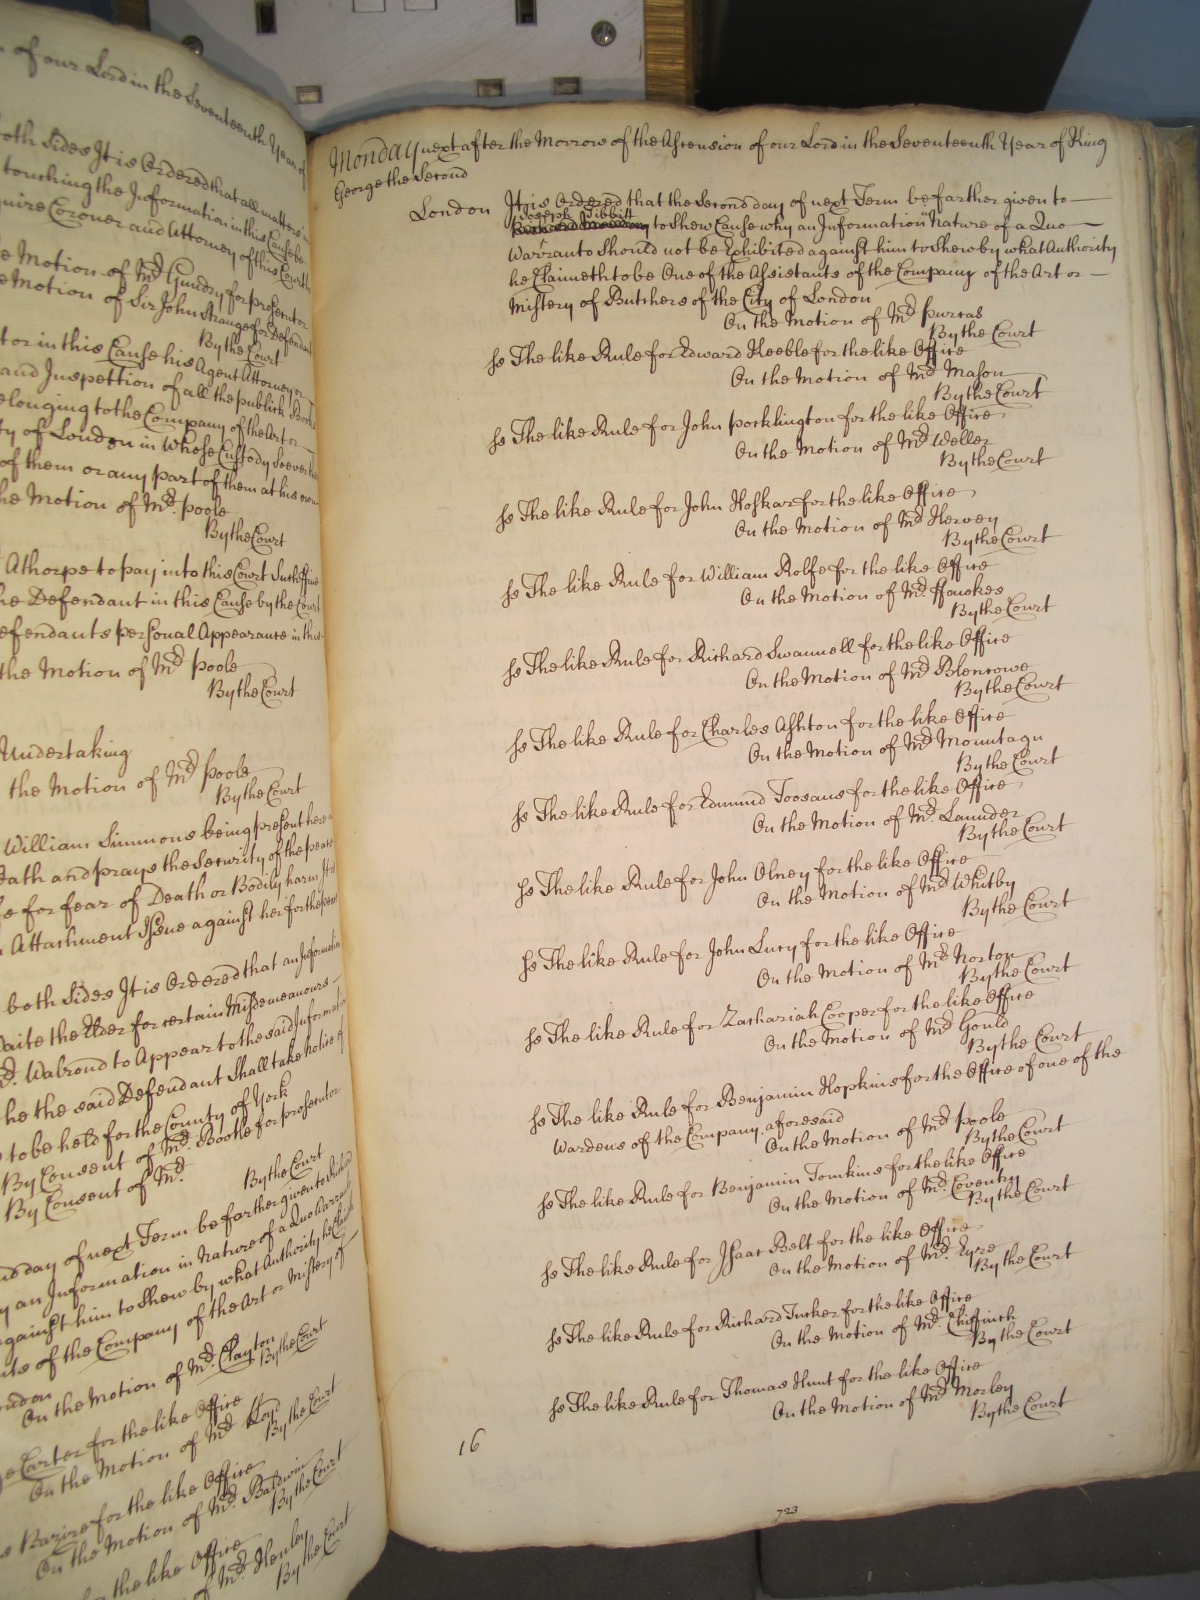 of our Lord in the Seventeenth Year of
both Sides It is Ordered that all matters in
touching the Information in this Cause be
quire Coroner and Attorney of this Court
e Motion of Mr. Gundry for prosecutor
e Motion of Sir John Strange for Defendant
By the Court
tor in this Cause his Agent Attorney or
and Inspection of all the publick Books
elonging to the Company of the Art or
ty of London in whose Custody Soever
of them or any part of them at his own
he Motion of Mr. poole
By the Court
Athorpe to pay into this Court Such
he Defendant in this Cause by the Court
efendants personal Appearance in this
the Motion of Mr. poole
By the Court
Undertaking
the Motion of Mr. poole
By the Court
William Simmons being present here
Oath and prays the Security of the peace
fe for fear of Death or Bodily harm It is
Attachment Issue against her for the
both Sides It is Ordered that an Information
for certain Misdemeanours
Mr. Walrond to Appear to the said Information
he the said Defendant Shall take notice of
to be held for the County of York
By Consent of Mr. Bootle for prosecutor
By Consent of Mr.
By the Court
day of next Term be farther given to Richard
y an Information in Nature of a Quo Warranto
against him to Shew by what Authority he Claimeth
of the Company of the Art or Mistery of
ondon
On the Motion of Mr. Clayton
By the Court
Carter for the like Office
On the Motion of Mr.
By the Court
for the like Office
On the Motion of Mr. Baldwin
By the Court
the like Office
of Mr. Henley
By the Court
Monday next after the Morrow of the Ascension of our Lord in the Seventeenth Year of King
George the Second
London It is Ordered that the Second day of next Term be farther given to
Joseph Tibbitt to Shew Cause why an Information in Nature of a Quo
Warranto Should not be Exhibited against him to Shew by what Authority
he Claimeth to be One of the Assistants of the Company of the Art or
Mistery of Butchers of the City of London
On the Motion of Mr. purcas
By the Court
ss The like Rule for Edward Keeble for the like Office
On the Motion of Mr. Mason
By the Court
ss The like Rule for John pocklington for the like Office
On the Motion of Mr. Weller
By the Court
ss The like Rule for John Hoskar for the like Office
On the Motion of Mr. Hervey
By the Court
ss The like Rule for William Rolfe for the like Office
On the Motion of Mr. ffouckes
By the Court
ss The like Rule for Richard Swannell for the like Office
On the Motion of Mr. Blencowe
By the Court
ss The like Rule for Charles Ashton for the like Office
On the Motion of Mr. Mountagu
By the Court
ss The like Rule for Edmund Toosans for the like Office
On the Motion of Mr. Launder
By the Court
ss The like Rule for John Olney for the like Office
On the Motion of Mr. Whitby
By the Court
ss The like Rule for John Lucy for the like Office
On the Motion of Mr. Norton
By the Court
ss The like Rule for Zachariah Cooper for the like Office
On the Motion of Mr. Gould
By the Court
ss The like Rule for Benjamin Hopkins for the Office of one of the
Wardens of the Company aforesaid
On the Motion of Mr. poole
By the Court
ss The like Rule for Benjamin Tomkins for the like Office
On the Motion of Mr. Coventry
By the Court
ss The like Rule for Isaac Belt for the like Office
On the Motion of Mr. Eyre
By the Court
ss The like Rule for Richard Tucker for the like Office
On the Motion of Mr. Chiffinch
By the Court
ss The like Rule for Thomas Hunt for the like Office
On the Motion of Mr. Morley
By the Court
16
723